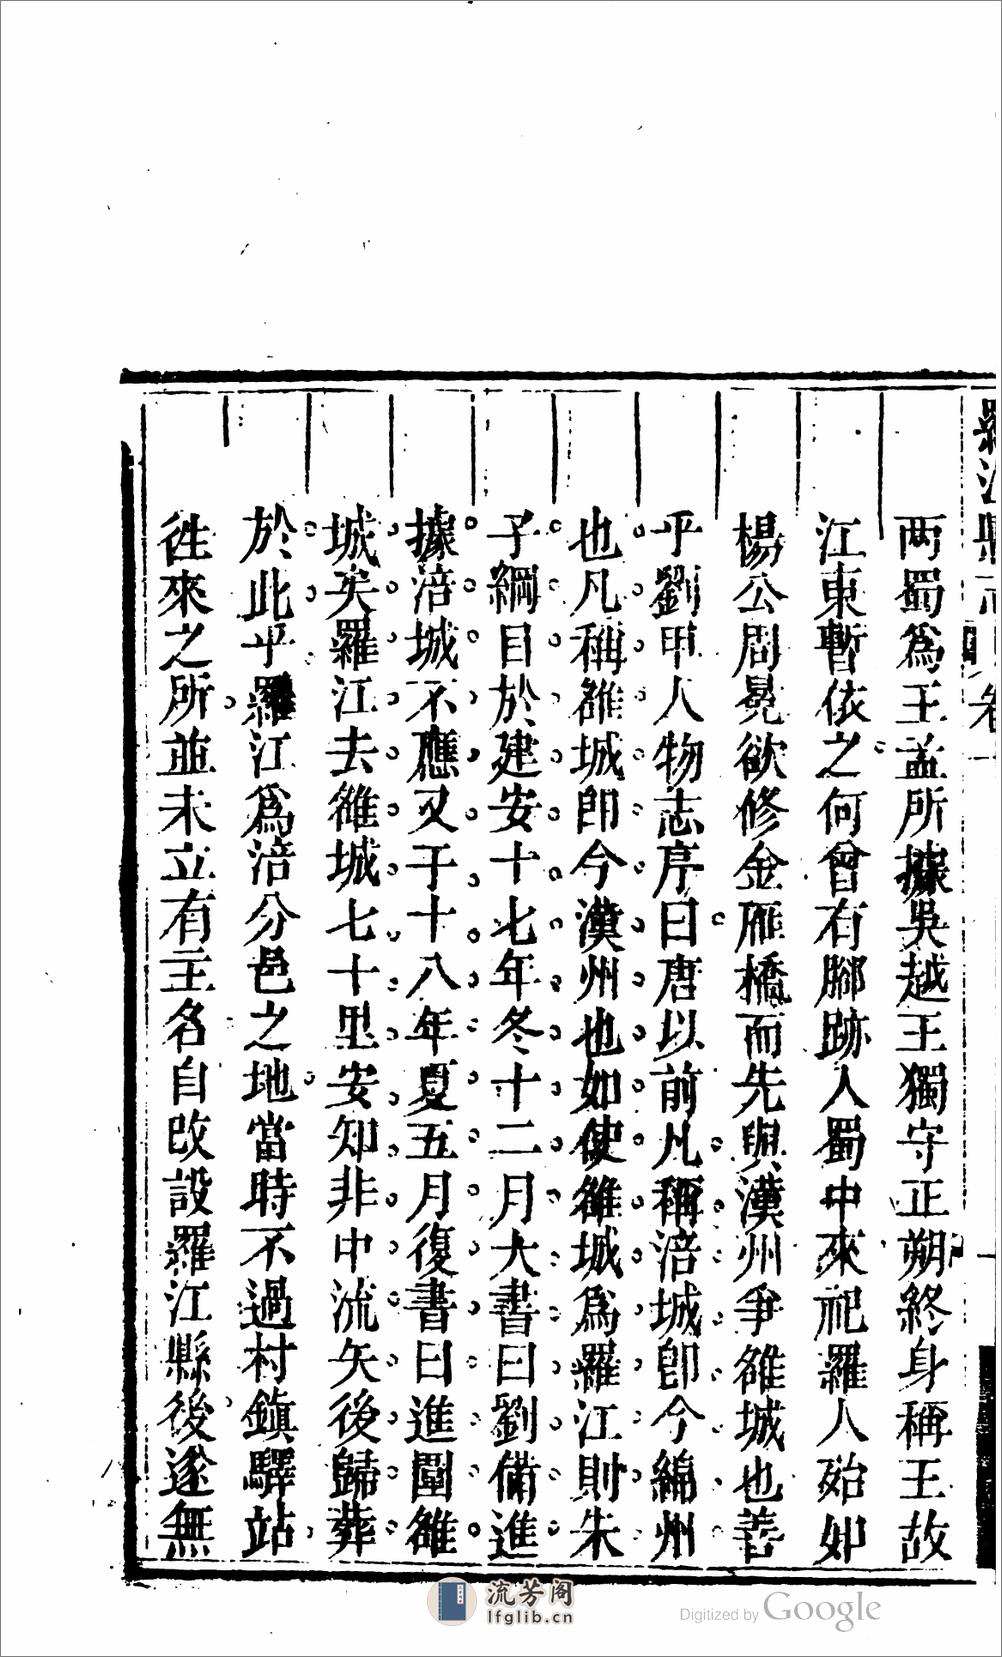 羅江縣志 卷一
兩蜀爲王孟所據吳越王獨守正朔終身稱王故
江東暫依之何曾有腳跡入蜀中來祀羅人殆如
楊公周冕欲修金雁橋而先與漢州爭雒城也善
乎劉甲人物志序曰唐以前凡稱涪城卽今綿州
也凡稱雒城卽今漢州也如使雒城爲羅江則朱
子綱目於建安十七年冬十二月大書曰劉備進
據涪城不應又于十八年夏五月復書曰進圍雒
城矣羅江去雒城七十里安知非中流矢後歸葬
於此乎羅江爲涪分邑之地當時不過村鎭驛站
徃來之所並未立有主名自改設羅江縣後遂無
流芳阁
lfglib.cn
Digitized by Google